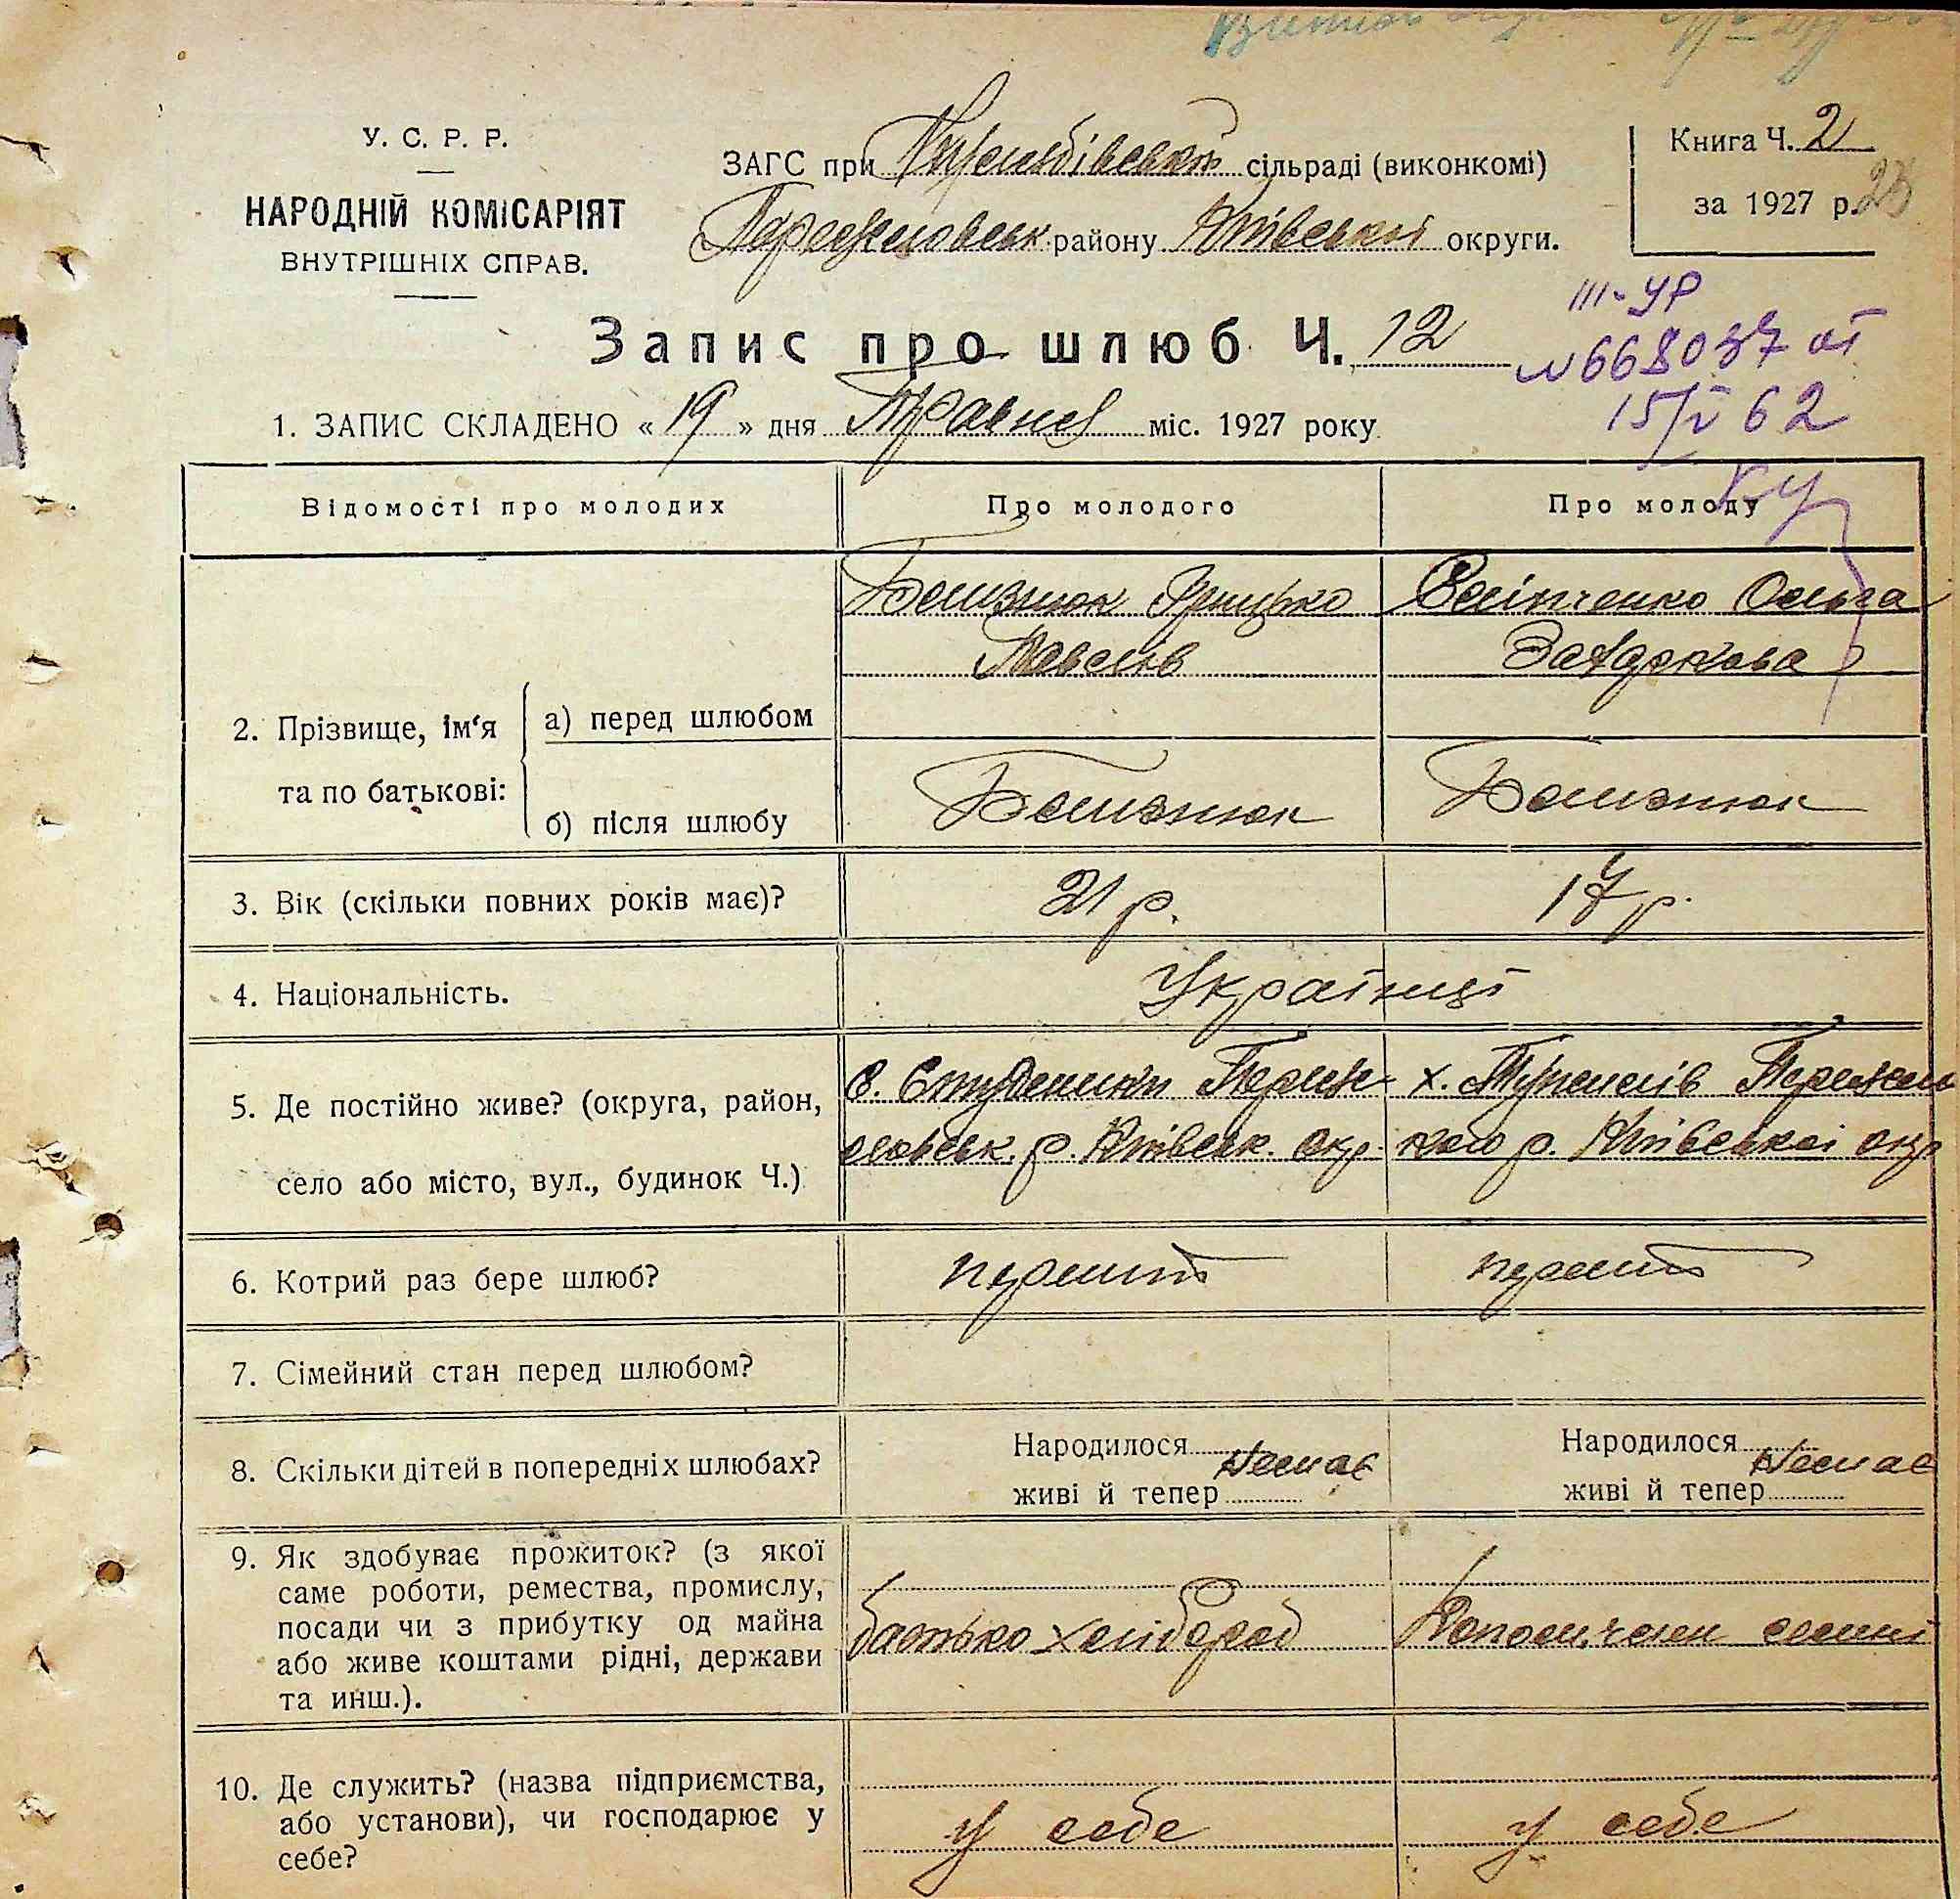 У. С. Р. Р.
НАРОДНІЙ КОМІСАРІЯТ
ВНУТРІШНІХ СПРАВ.
ЗАГС при сільраді (виконкомі)
району Київської округи.
Книга Ч. 2
за 1927 р.
Запис про шлюб Ч. 12
III-УР
№668037 от
15/V 62
1. ЗАПИС СКЛАДЕНО « 19 » дня Травня міс. 1927 року
Відомості про молодих
Про молодого
Про молоду
2. Прізвище, ім‘я
та по батькові:
а) перед шлюбом
Близнюк Грицько
Ольга
Захаркова
б) після шлюбу
Близнюк
Близнюк
3. Вік (скільки повних років має)?
21 р.
17 р.
4. Національність.
Українці
5. Де постійно живе? (округа, район,
село або місто, вул., будинок Ч.)
С. Студеники Переяс-
лавськ. р. Київськ. окр.
х. р. Київської окр
6. Котрий раз бере шлюб?
перший
перший
7. Сімейний стан перед шлюбом?
8. Скільки дітей в попередніх шлюбах?
Народилося
живі й тепер
Немає
Народилося
живі й тепер
Немає
9. Як здобуває прожиток? (з якої
саме роботи, ремества, промислу,
посади чи з прибутку од майна
або живе коштами рідні, держави
та инш.).
батько хлібороб
10. Де служить? (назва підприємства,
або установи), чи господарює у
себе?
у себе
у себе